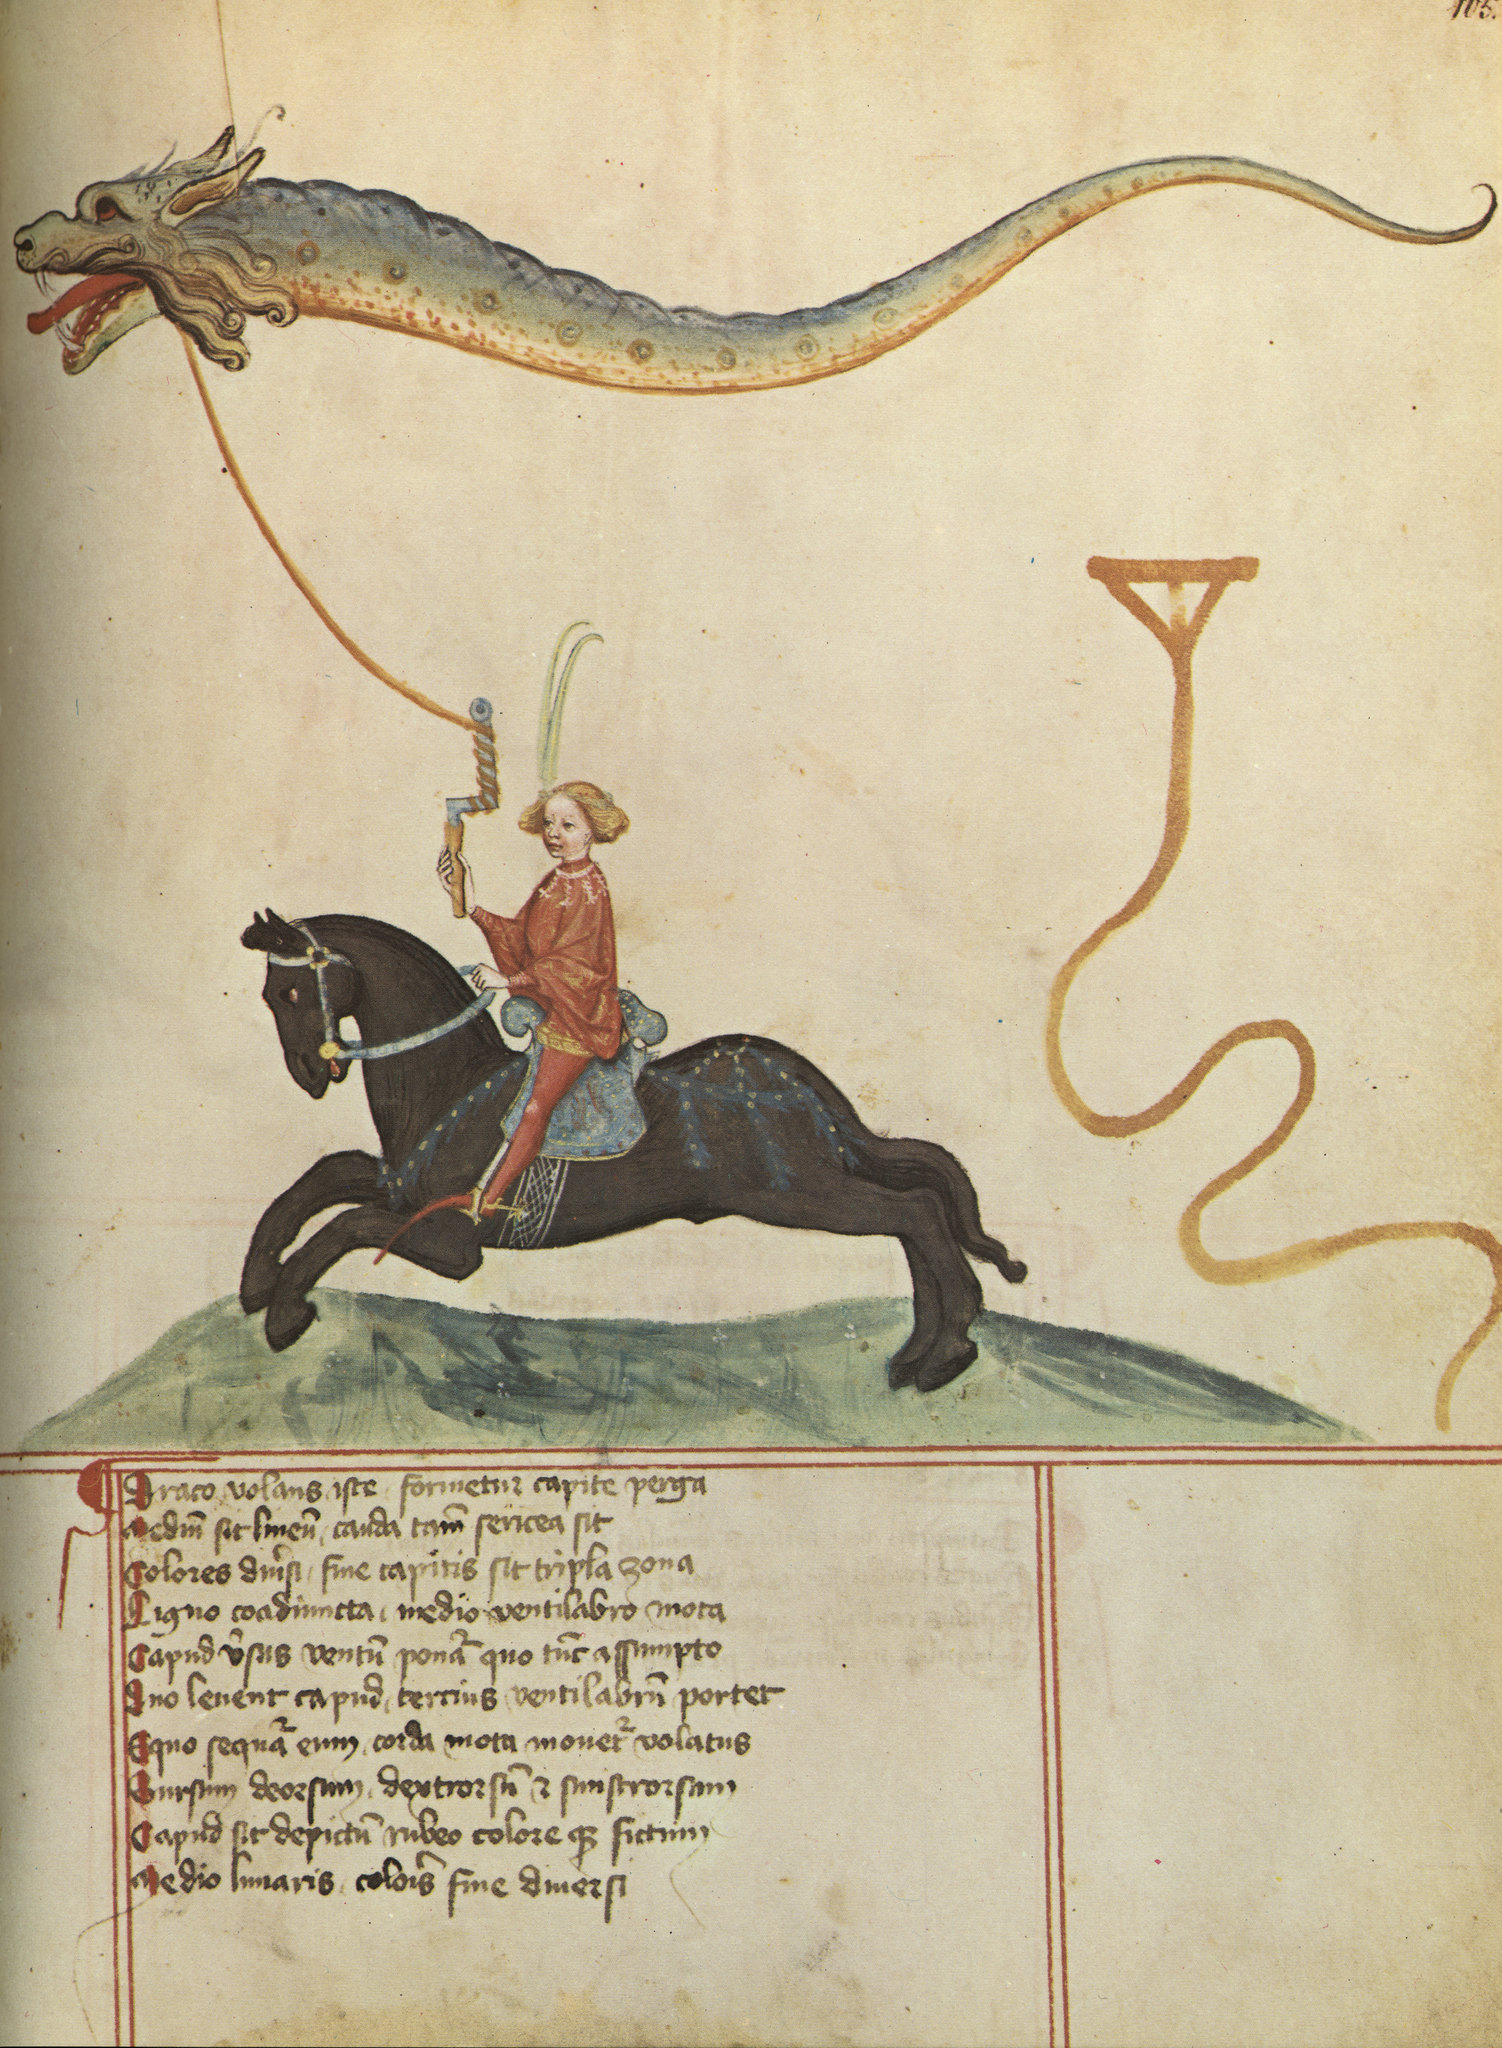 105.
Draco volans iste formetur capite perga
Mediū sit lineū cauda tam̄ sericea sit
Colores diu̓si fine capitis sit tripla zona
Ligno coadiuncta medio ventilabro mota
Capud v̓sus ventū ponat᷑ quo tūc assumpto
Duo leuent capud tercius ventilabrū portet
Equo sequat᷑ eum corda mota mouet᷑ volatus
Sursum deorsum dextrorsū ⁊ sinistrorsum
Capud sit depictū rubeo colore fictum
Medio lunaris colois̓ fine diuersi